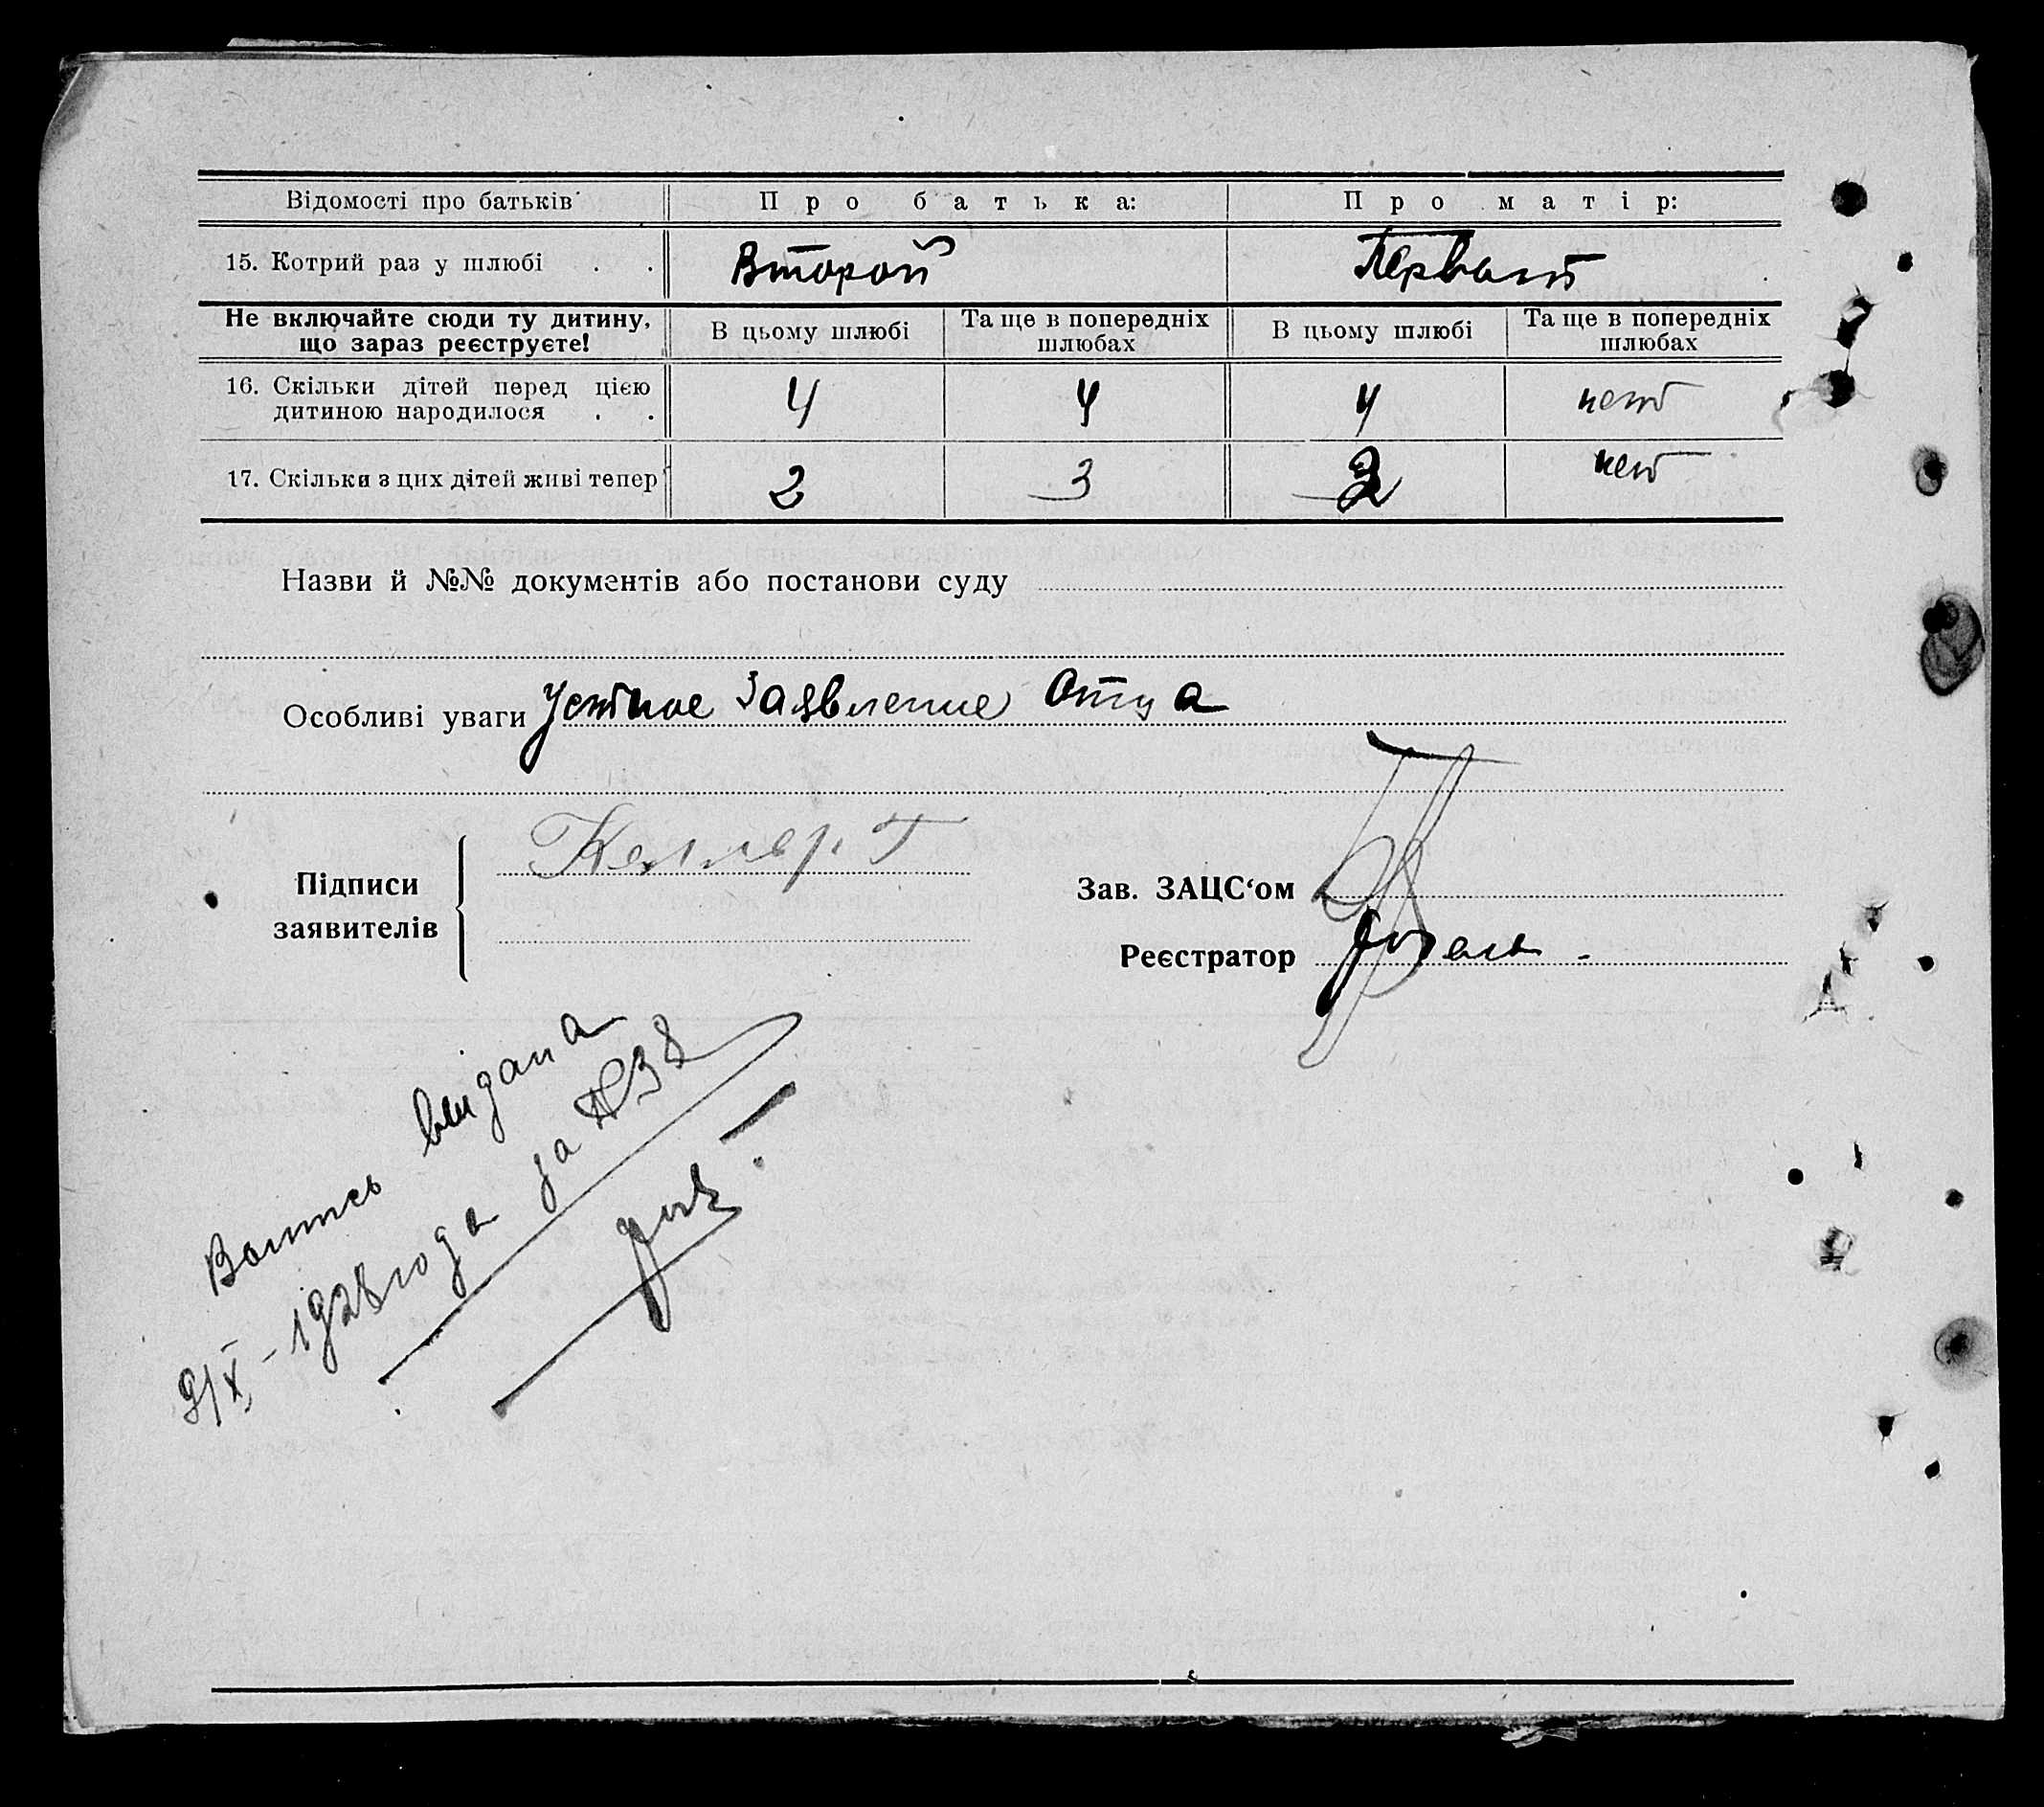 Відомості про батьків
Про батька:
Про матір:
15. Котрий раз у шлюбі . .
Второй
Первый
Не включайте сюди ту дитину, що зараз реєструєте!
В цьому шлюбі
Та ще в попередніх шлюбах
В цьому шлюбі
Та ще в попередніх шлюбах
16. Скільки дітей перед цією
дитиною народилося . .
4
4
4
нет
17. Скільки з цих дітей живі тепер
2
3
2
нет
Назви й №№ документів або постанови суду
Особливі уваги Устное Заявление Отца
Підписи заявителів
Келлер. Г
Зав. ЗАЦС‘ом
Реєстратор
Выпись выдана
9/X - 1928 года за №38